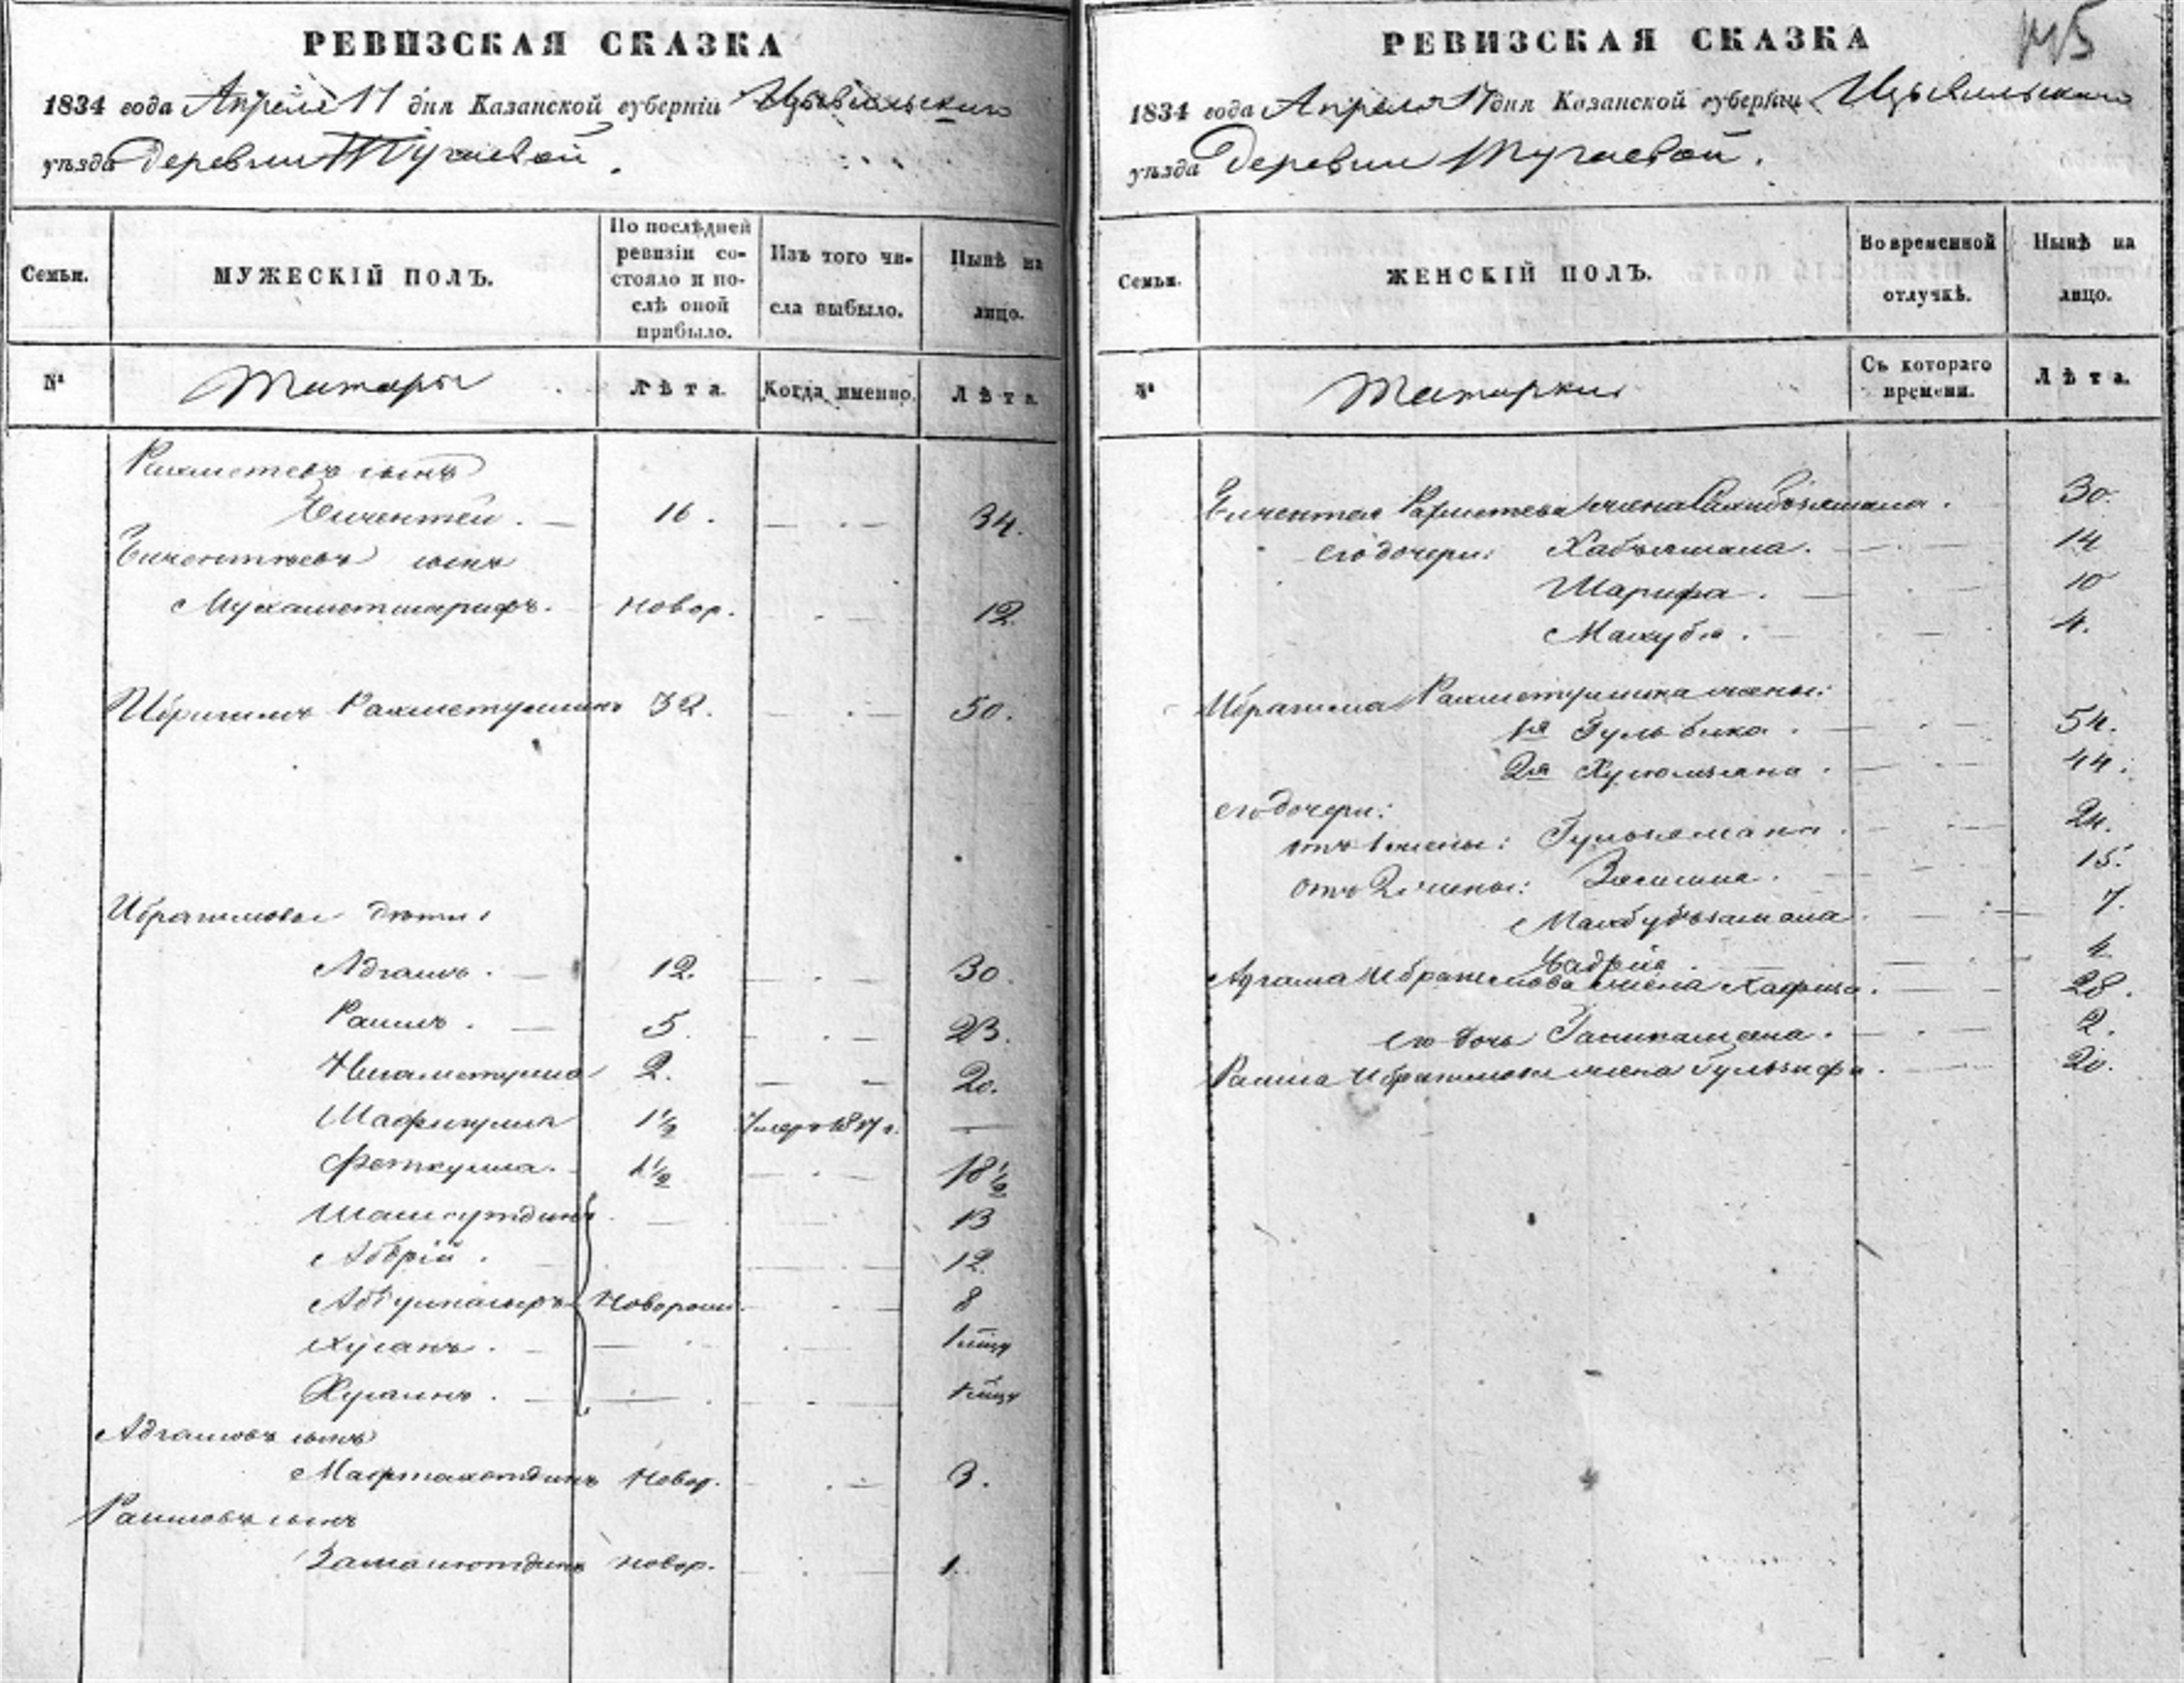 РЕВИЗСКАЯ СКАЗКА
1834 года Апреля 17 дня Казанской губерніи Цывильскаго
уѣзда Деревни Тугаевой.
Семьи.
МУЖЕСКІЙ ПОЛЪ.
По послѣдней
ревизіи со-
стояло и по-
слѣ оной
прибыло.
Изъ того чи-
сла выбыло.
Нынѣ на
лицо.
№
Татары
Лѣта.
Когда именно.
Лѣта.
Рахметевъ сынъ
Бичентей. 16. 34.
Бичентѣевъ сынъ
Мухаметшарифъ. Новор. 12.
Ибрагимъ Рахметуллинъ 32. 50.
Ибрагимовы дѣти:
Адгамъ. 12. 30.
Раимъ. 5. 23.
Нигаметулла 2. 20.
Шафигулла 1½ Умеръ 1817 г.
Феткулла. 1½ 18½
Шамсутдинъ 13
Абдрій. 12.
Абдулнасыръ Новорож. 8
Хусаинъ.
Адгамовъ сынъ
Мафтахетдинъ Новор. 3.
Раимовъ сынъ
Замалютдинъ новор. 1.
РЕВИЗСКАЯ СКАЗКА
1834 года Апреля 17 дня Казанской губерніи Цывильскаго
уѣзда Деревни Тугаевой.
Семьи.
ЖЕНСКІЙ ПОЛЪ.
Во временной
отлучкѣ.
Нынѣ на
лицо.
№
Татарки
Съ котораго
времени.
Лѣта.
Бичентея Рахметева жена 30.
его дочери: Хабъямала. 14
Шарифа. 10
Махуба. 4.
Ибрагима Рахметуллина жены:
1я Гульбика. 54.
2я 44.
его дочери:
отъ 1 жены: Гульямала. 24.
отъ 2 жены: 15.
Махбубъзамала. 7.
Бадрія. 4
Адгама Ибрагимова жена Хафиза. 28.
его дочь 2.
Раима Ибрагимова жена Гульзифа. 20.